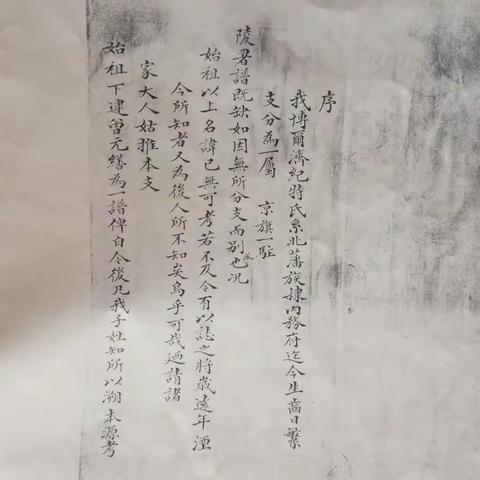 序
我博爾濟紀特氏系北藩族隸內務府迄今生齒日繁
支分為二屬 京旗一駐
陵署譜既缺如因無所分支而別派也况
始祖以上名諱已無可考若不及今有以誌之將歲遠年湮
今所知者又為後人所不知矣烏乎可哉廼請諸
家大人姑推本支
始祖下逮曾元繕為一譜俾自今後凡我子姓知所以溯本源考